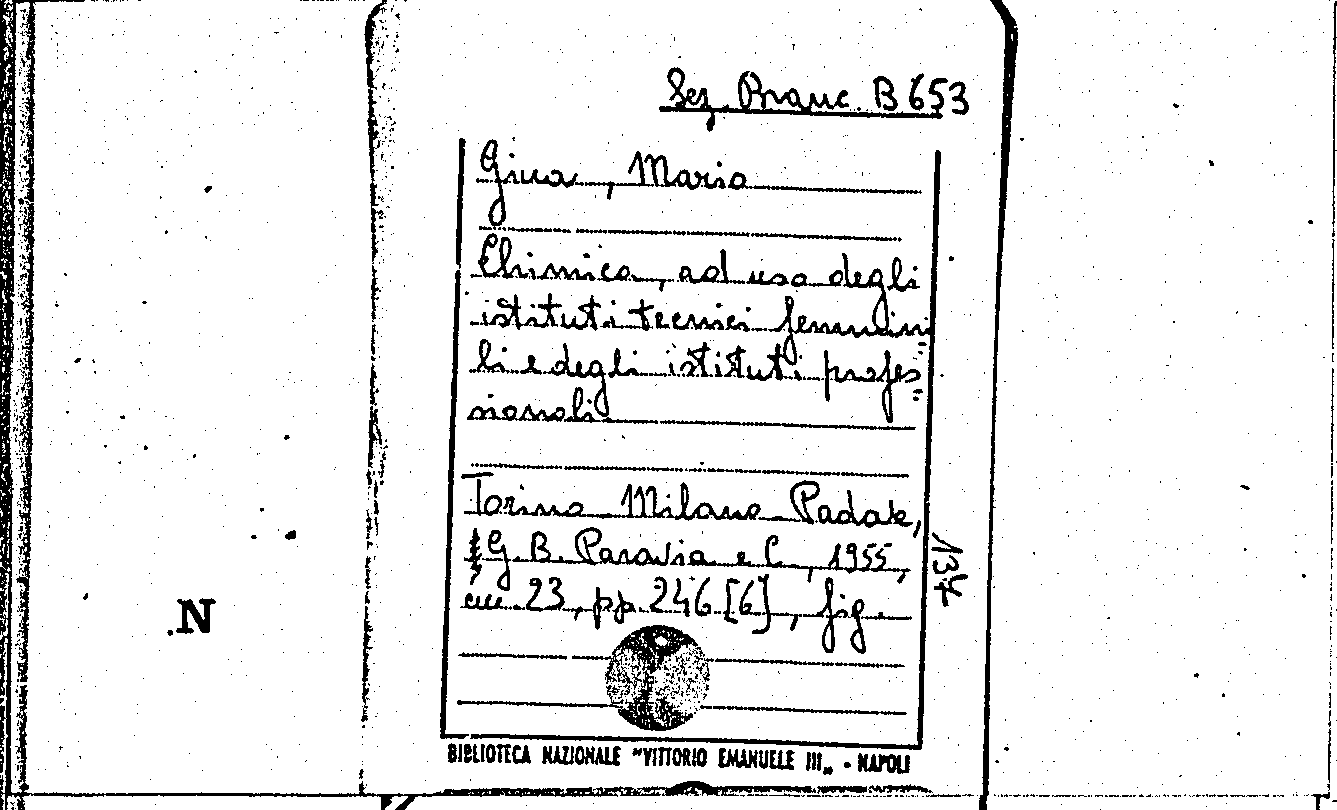 Sez. Branc. B 653
Giua, Mario
Chimica, ad uso degli
istituti tecnici femmini
li e degli istituti profes=
sionali.
Torino Milano Padova,
G. B. Paravia e C., 1955,
cm. 23, pp. 246 [6], fig.
137
.N
BIBLIOTECA NAZIONALE "VITTORIO EMANUELE III„ - NAPOLI